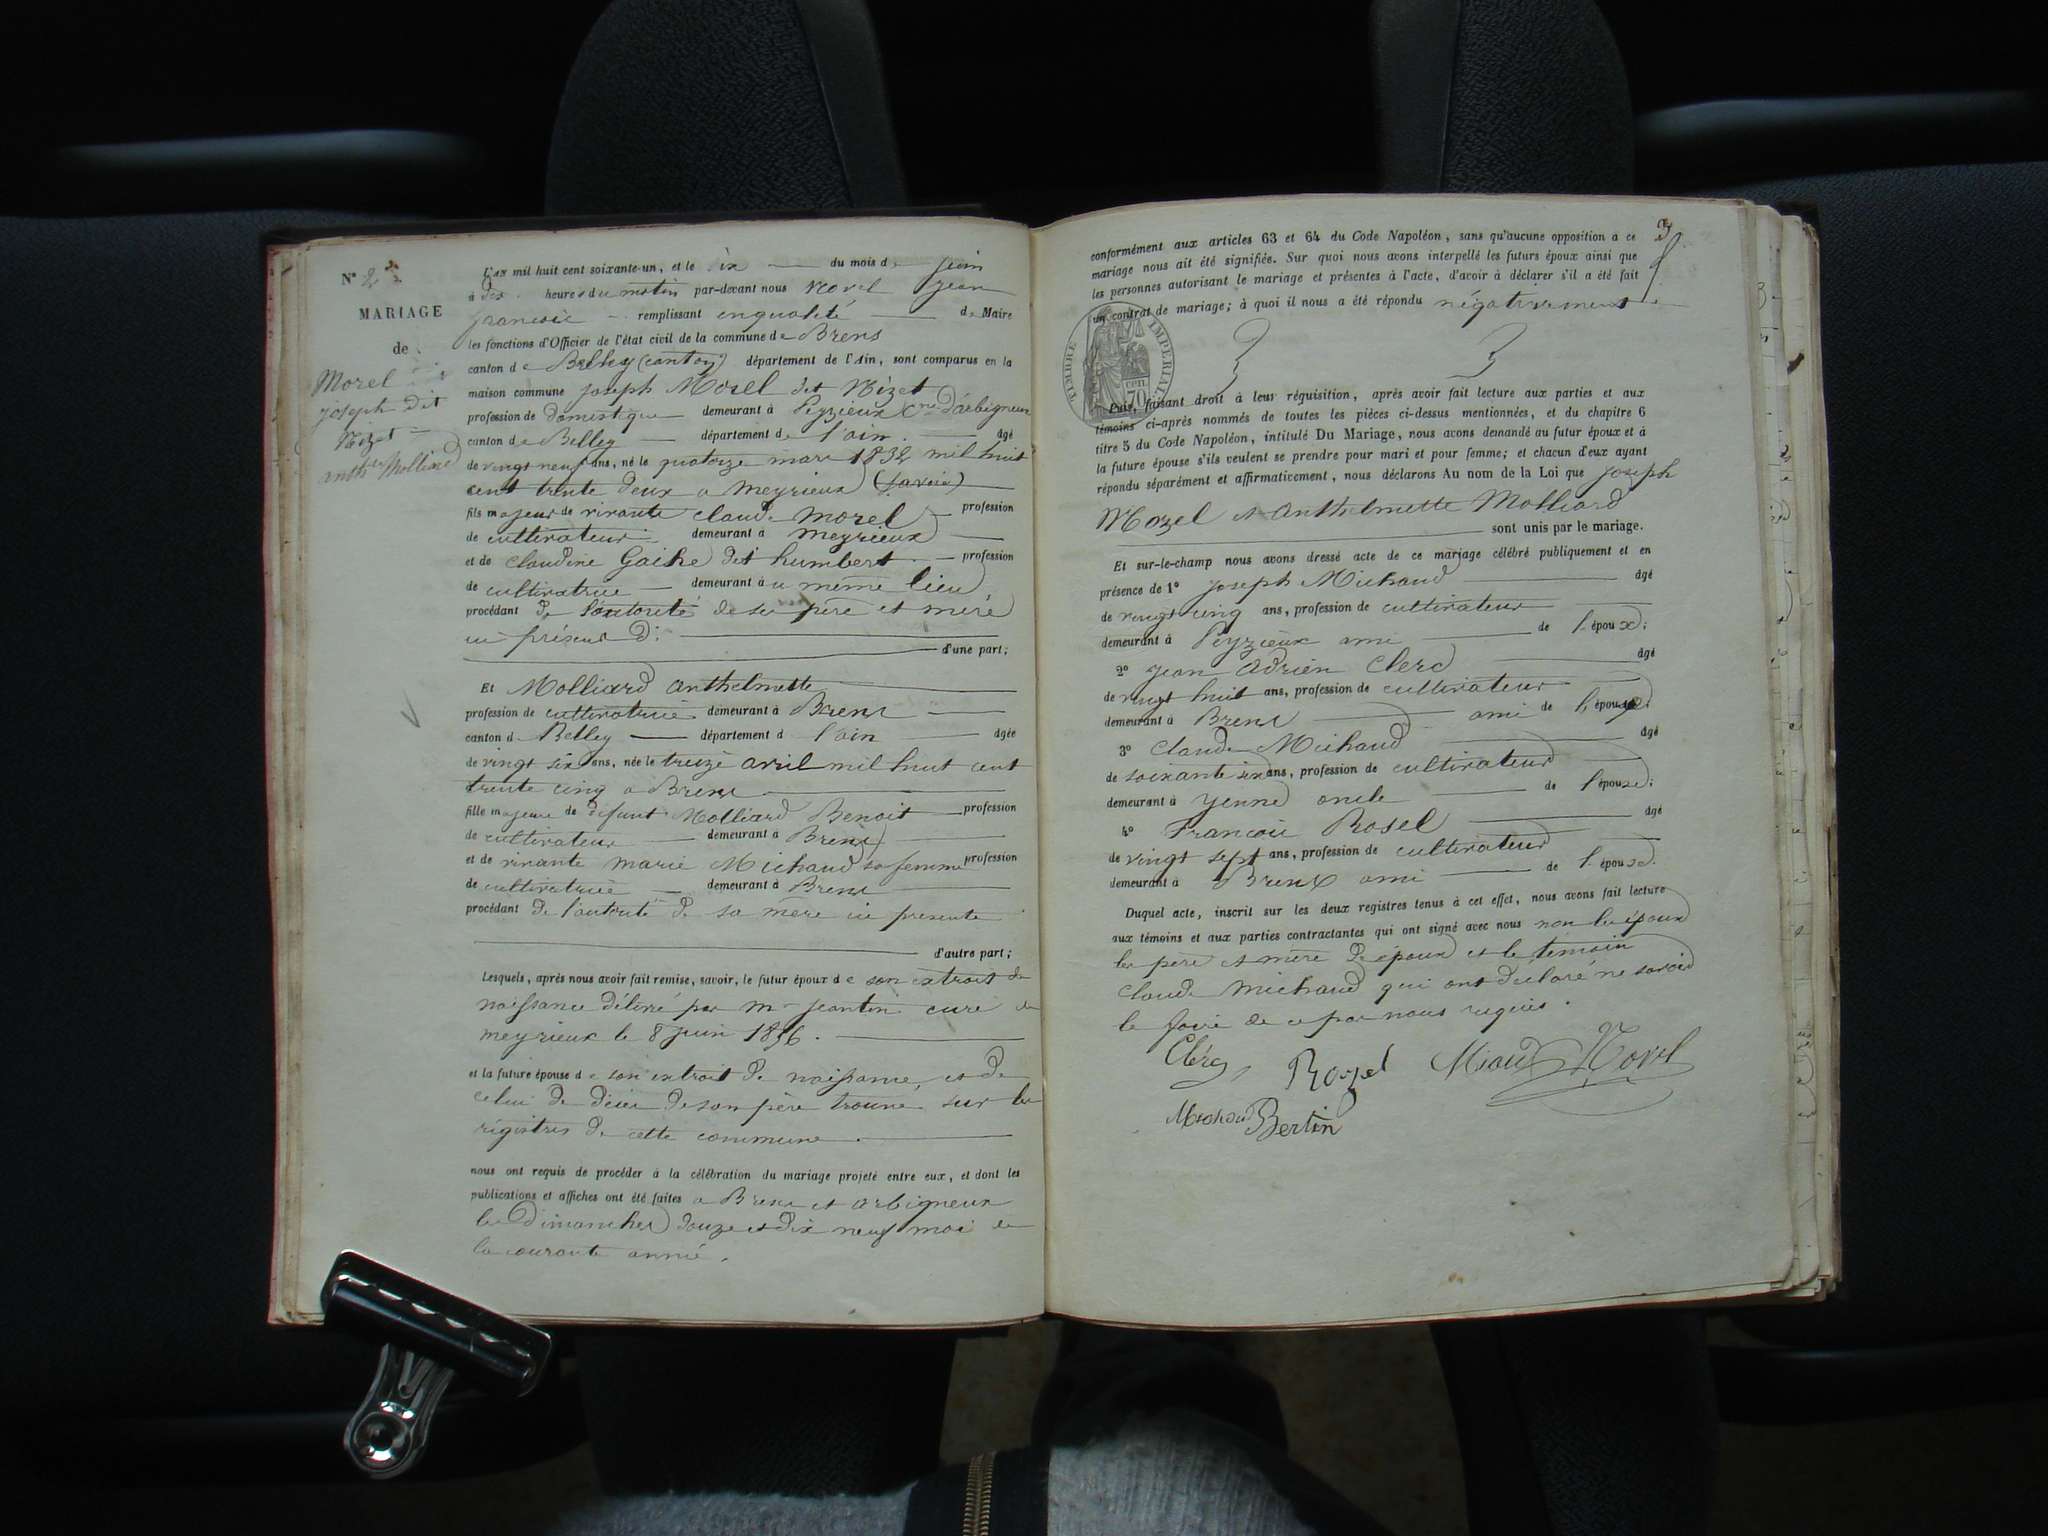 N° 2
MARIAGE
de
Morel
joseph dit
Nizet
anth.te Molliard
L'an mil huit cent soixante-un, et le six du mois de juin
à dix heures du matin par-devant nous Novel jean
francois remplissant en qualité de Maire
les fonctions d'Officier de l'état civil de la commune de Brens
canton de Belley (canton) département de l'Ain, sont comparus en la
maison commune joseph Morel dit Nizet
profession de domestique demeurant à Peyzieux c.ne d'arbignieu
canton de Belley département de l'ain âgé
de vingt neuf ans, né le quatorze mars 1832 mil huit
cent trente deux a meyrieux (savoie)
fils majeur de vivants claude morel profession
de cultivateur demeurant à meyrieux
et de claudine Gache dit humbert profession
de cultivatrice demeurant à u même lieu
procédant de l'autorité de ses père et mère
ici présent d'une part;
Et Molliard anthelmette
profession de cultivatrice demeurant à Brens
canton d Belley département d l'ain âgée
de vingt six ans, née le treize avril mil huit cent
trente cinq a Brens
fille majeure de défunt Molliard Benoit profession
de cultivateur demeurant à Brens
et de vivante marie Michaud sa femme profession
de cultivatrice demeurant à Brens
procédant de l'autorité de sa mère ici presente
d'autre part;
Lesquels, après nous avoir fait remise, savoir, le futur époux d e son extrait de
naissance délivré par mr jeantin curé de
meyrieux le 8 juin 1856.
et la future épouse d e son extrait de naissance, et de
celui de décès de son père trouvé sur les
régistres de cette commune.
nous ont requis de procéder à la célébration du mariage projeté entre eux, et dont les
publications et affiches ont été faites a Brens et arbignieux
les dimanches douze et dix neuf mai de
la courante année.
3
conformément aux articles 63 et 64 du Code Napoléon, sans qu'aucune opposition à ce
mariage nous ait été signifiée. Sur quoi nous avons interpellé les futurs époux ainsi que
les personnes autorisant le mariage et présentes à l'acte, d'avoir à déclarer s'il a été fait
un contrat de mariage; à quoi il nous a été répondu négativement
TIMBRE IMPERIAL
70 cen
Puis, faisant droit à leur réquisition, après avoir fait lecture aux parties et aux
témoins ci-après nommés de toutes les pièces ci-dessus mentionnées, et du chapitre 6
titre 5 du Code Napoléon, intitulé Du Mariage, nous avons demandé au futur époux et à
la future épouse s'ils veulent se prendre pour mari et pour femme; et chacun d'eux ayant
répondu séparément et affirmativement, nous déclarons Au nom de la Loi que joseph
Morel et anthelmette Molliard
sont unis par le mariage.
Et sur-le-champ nous avons dressé acte de ce mariage célébré publiquement et en
présence de 1° joseph Michaud âgé
de vingt cinq ans, profession de cultivateur
demeurant à Peyzieux ami de l'époux;
2° jean adrien Clerc âgé
de vingt huit ans, profession de cultivateur
demeurant à Brens ami de l'époux;
3° claude Michaud âgé
de soixante six ans, profession de cultivateur
demeurant à yenne oncle de l'épouse;
4° francois Rosel âgé
de vingt sept ans, profession de cultivateur
demeurant à Brens ami de l'épouse.
Duquel acte, inscrit sur les deux registres tenus à cet effet, nous avons fait lecture
aux témoins et aux parties contractantes qui ont signé avec nous non les époux
les père et mère de époux et le témoin
claude michaud qui ont déclaré ne savoir
le faire de ce par nous requis.
Clerc Rozel Novel
Michaud Bertin